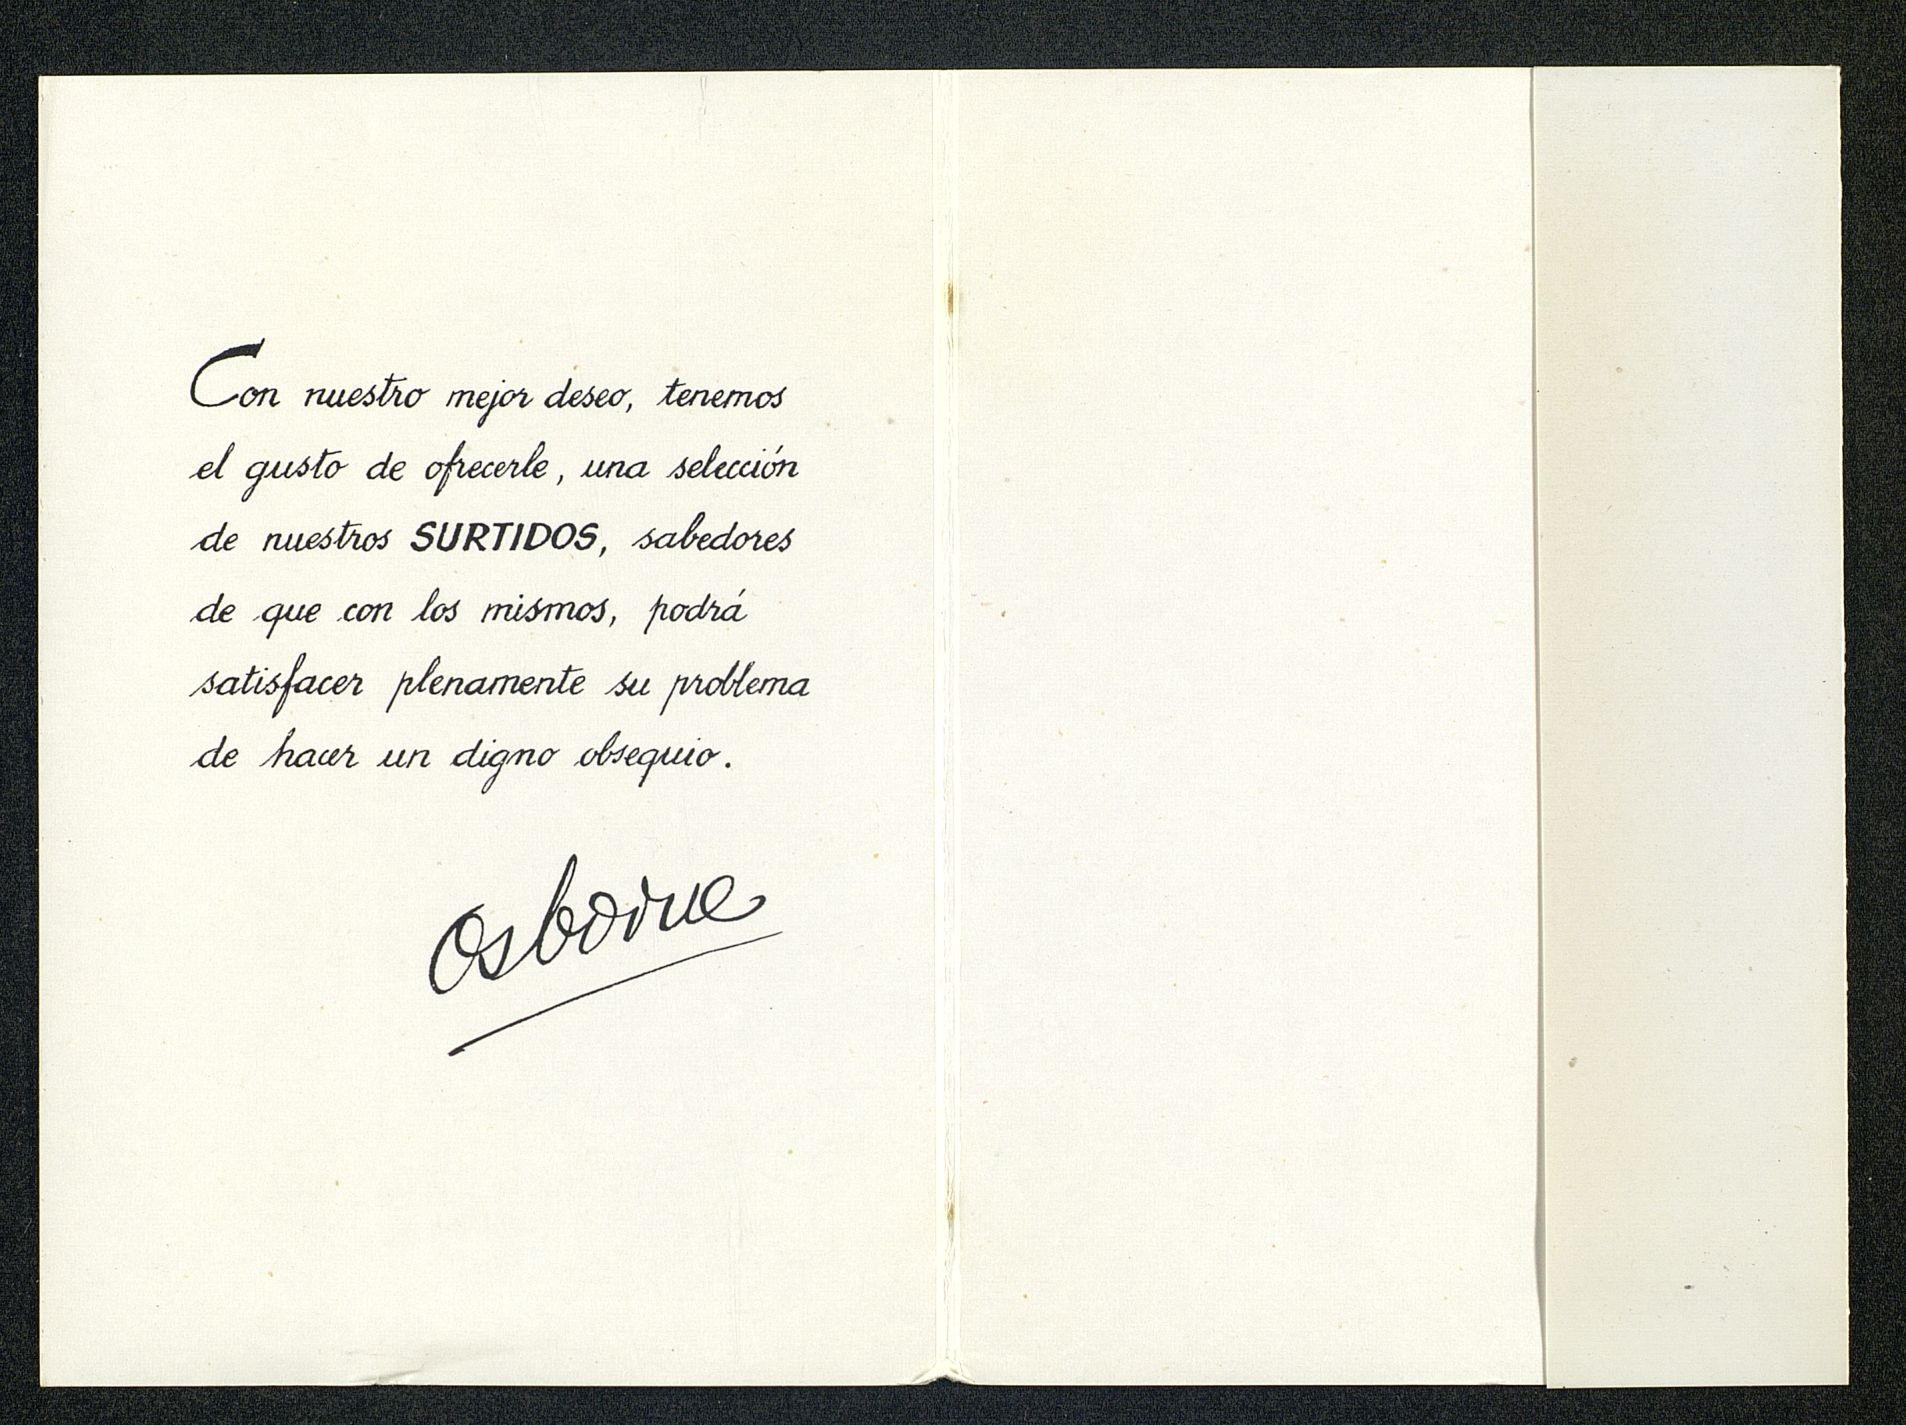 Con nuestro mejor deseo, tenemos
el gusto de ofrecerle, una selección
de nuestros SURTIDOS, sabedores
de que con los mismos, podrá
satisfacer plenamente su problema
de hacer un digno obsequio.
Osborne